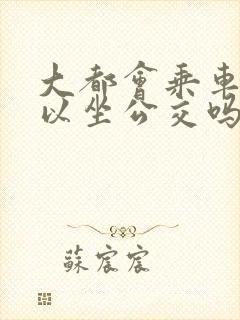 大都會乘車
以坐公交吗
蘇宸宸